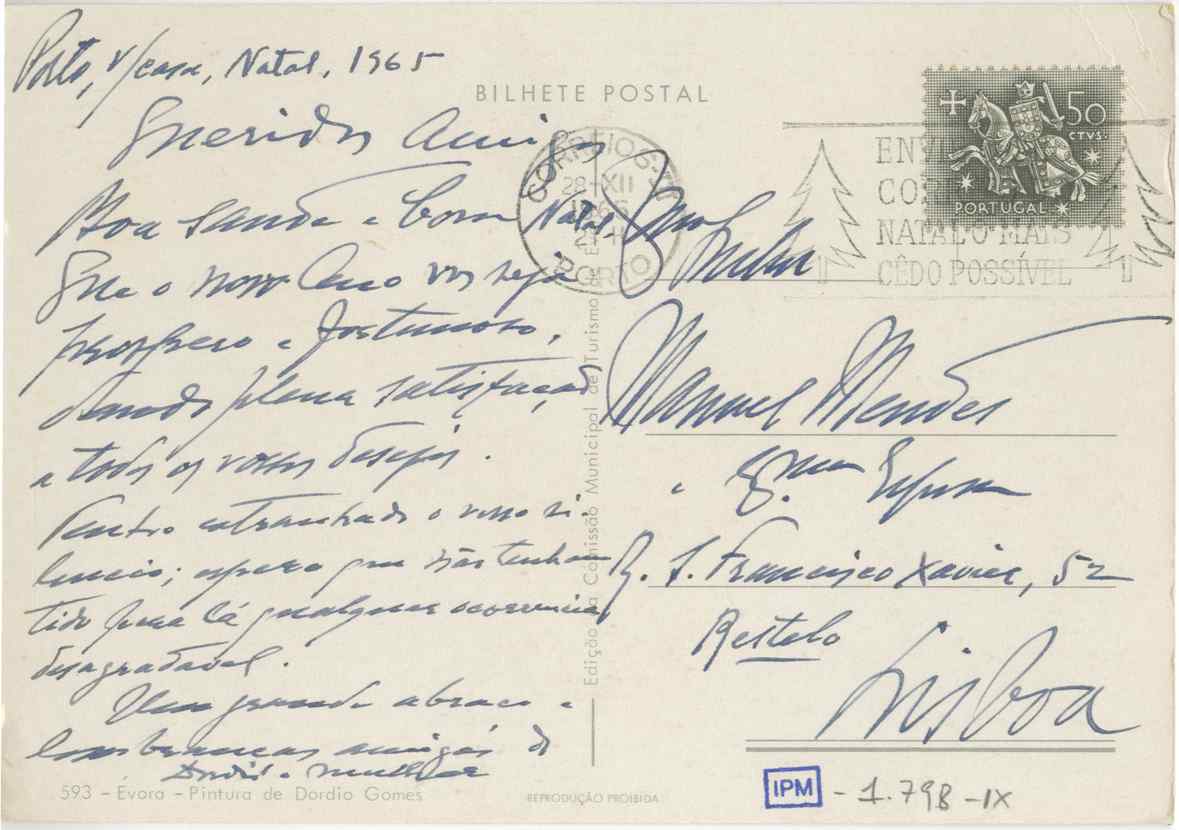 Porto, v/casa, Natal, 1965
BILHETE POSTAL
Queridos Amigos
Boa saude e bom Natal.
Que o novo Ano vos seja
prospero e fortunoso,
dando plena satisfação
a todos os vossos desejos.
Tenho estranhado o vosso si-
lencio; espero que não tenham
tido por lá qualquer ocorrencia
desagradavel.
Um grande abraço e
lembranças amigas de
Dordio e mulher
593 - Évora - Pintura de Dordio Gomes
Edição da Comissão Municipal de Turismo de Évora
REPRODUÇÃO PROIBIDA
CORREIOS
28-XII
PORTO
50
CTVS.
PORTUGAL
NATAL O MAIS
CÊDO POSSÍVEL
Manuel Mendes
e Exma Esposa
R. S. Francisco Xavier, 52
Restelo
Lisboa
IPM - 1.798 - IX